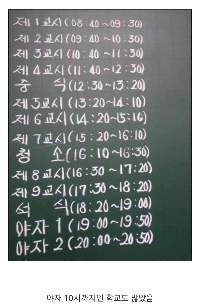 제1교시(08:40~09:30)
제2교시(09:40~10:30)
제3교시(10:40~11:30)
제4교시(11:40~12:30)
중 식(12:30~13:20)
제5교시(13:20~14:10)
제6교시(14:20~15:10)
제7교시(15:20~16:10)
청 소(16:10~16:30)
제8교시(16:30~17:20)
제9교시(17:30~18:20)
석 식(18:20~19:00)
야자 1 (19:00~19:50)
야자 2 (20:00~20:50)
야자 10시까지인 학교도 많았음